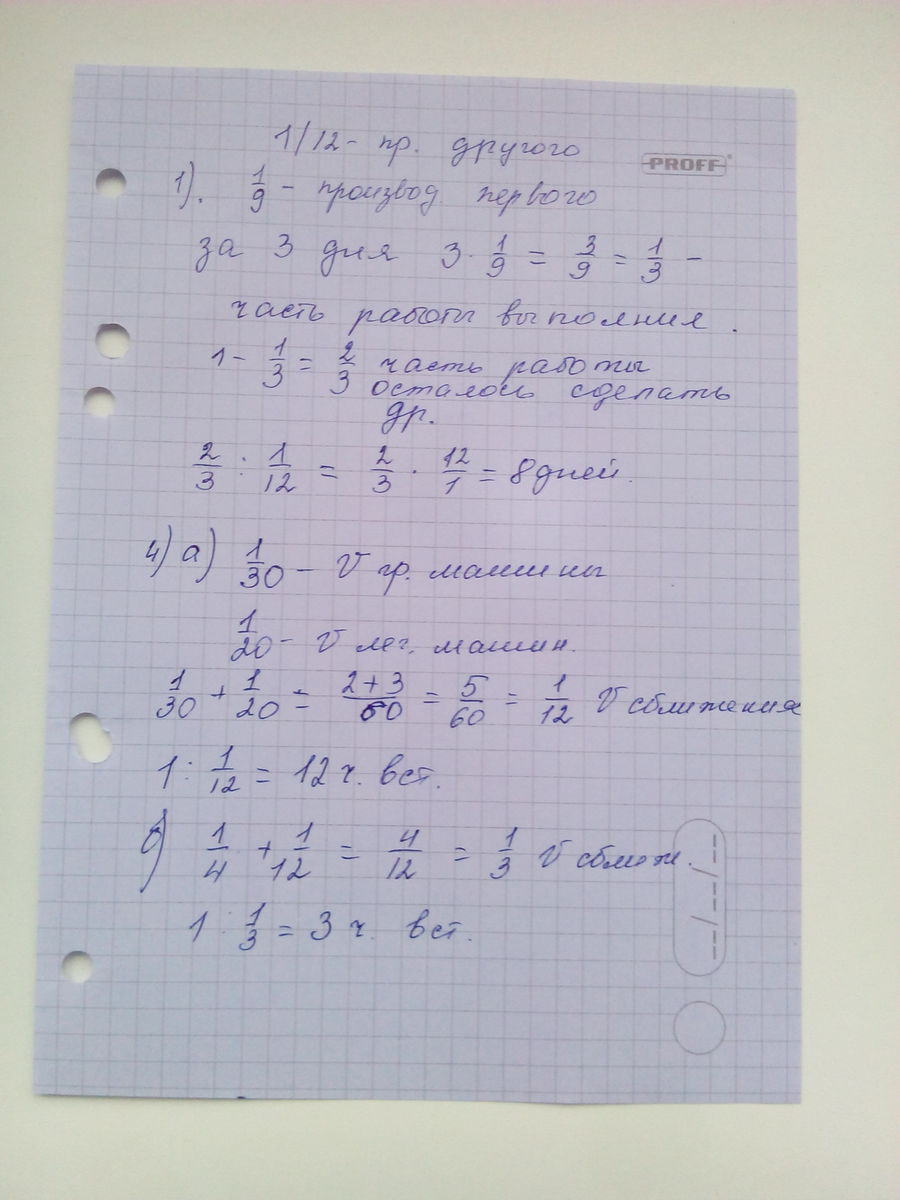 1/12 - пр. другого
PROFF
1). 1/9 - производ первого
за 3 дня 3 · 1/9 = 3/9 = 1/3 -
часть работы выполния.
1 - 1/3 = 2/3 часть работы
осталось сделать
др.
2/3 : 1/12 = 2/3 · 12/1 = 8 дней.
4) а) 1/30 - V гр. машины
1/20 - V лег. машин.
1/30 + 1/20 = 2+3/60 = 5/60 = 1/12 V сближения
1 : 1/12 = 12 ч. вст.
б) 1/4 + 1/12 = 4/12 = 1/3 V сближ.
1 : 1/3 = 3 ч. вст.